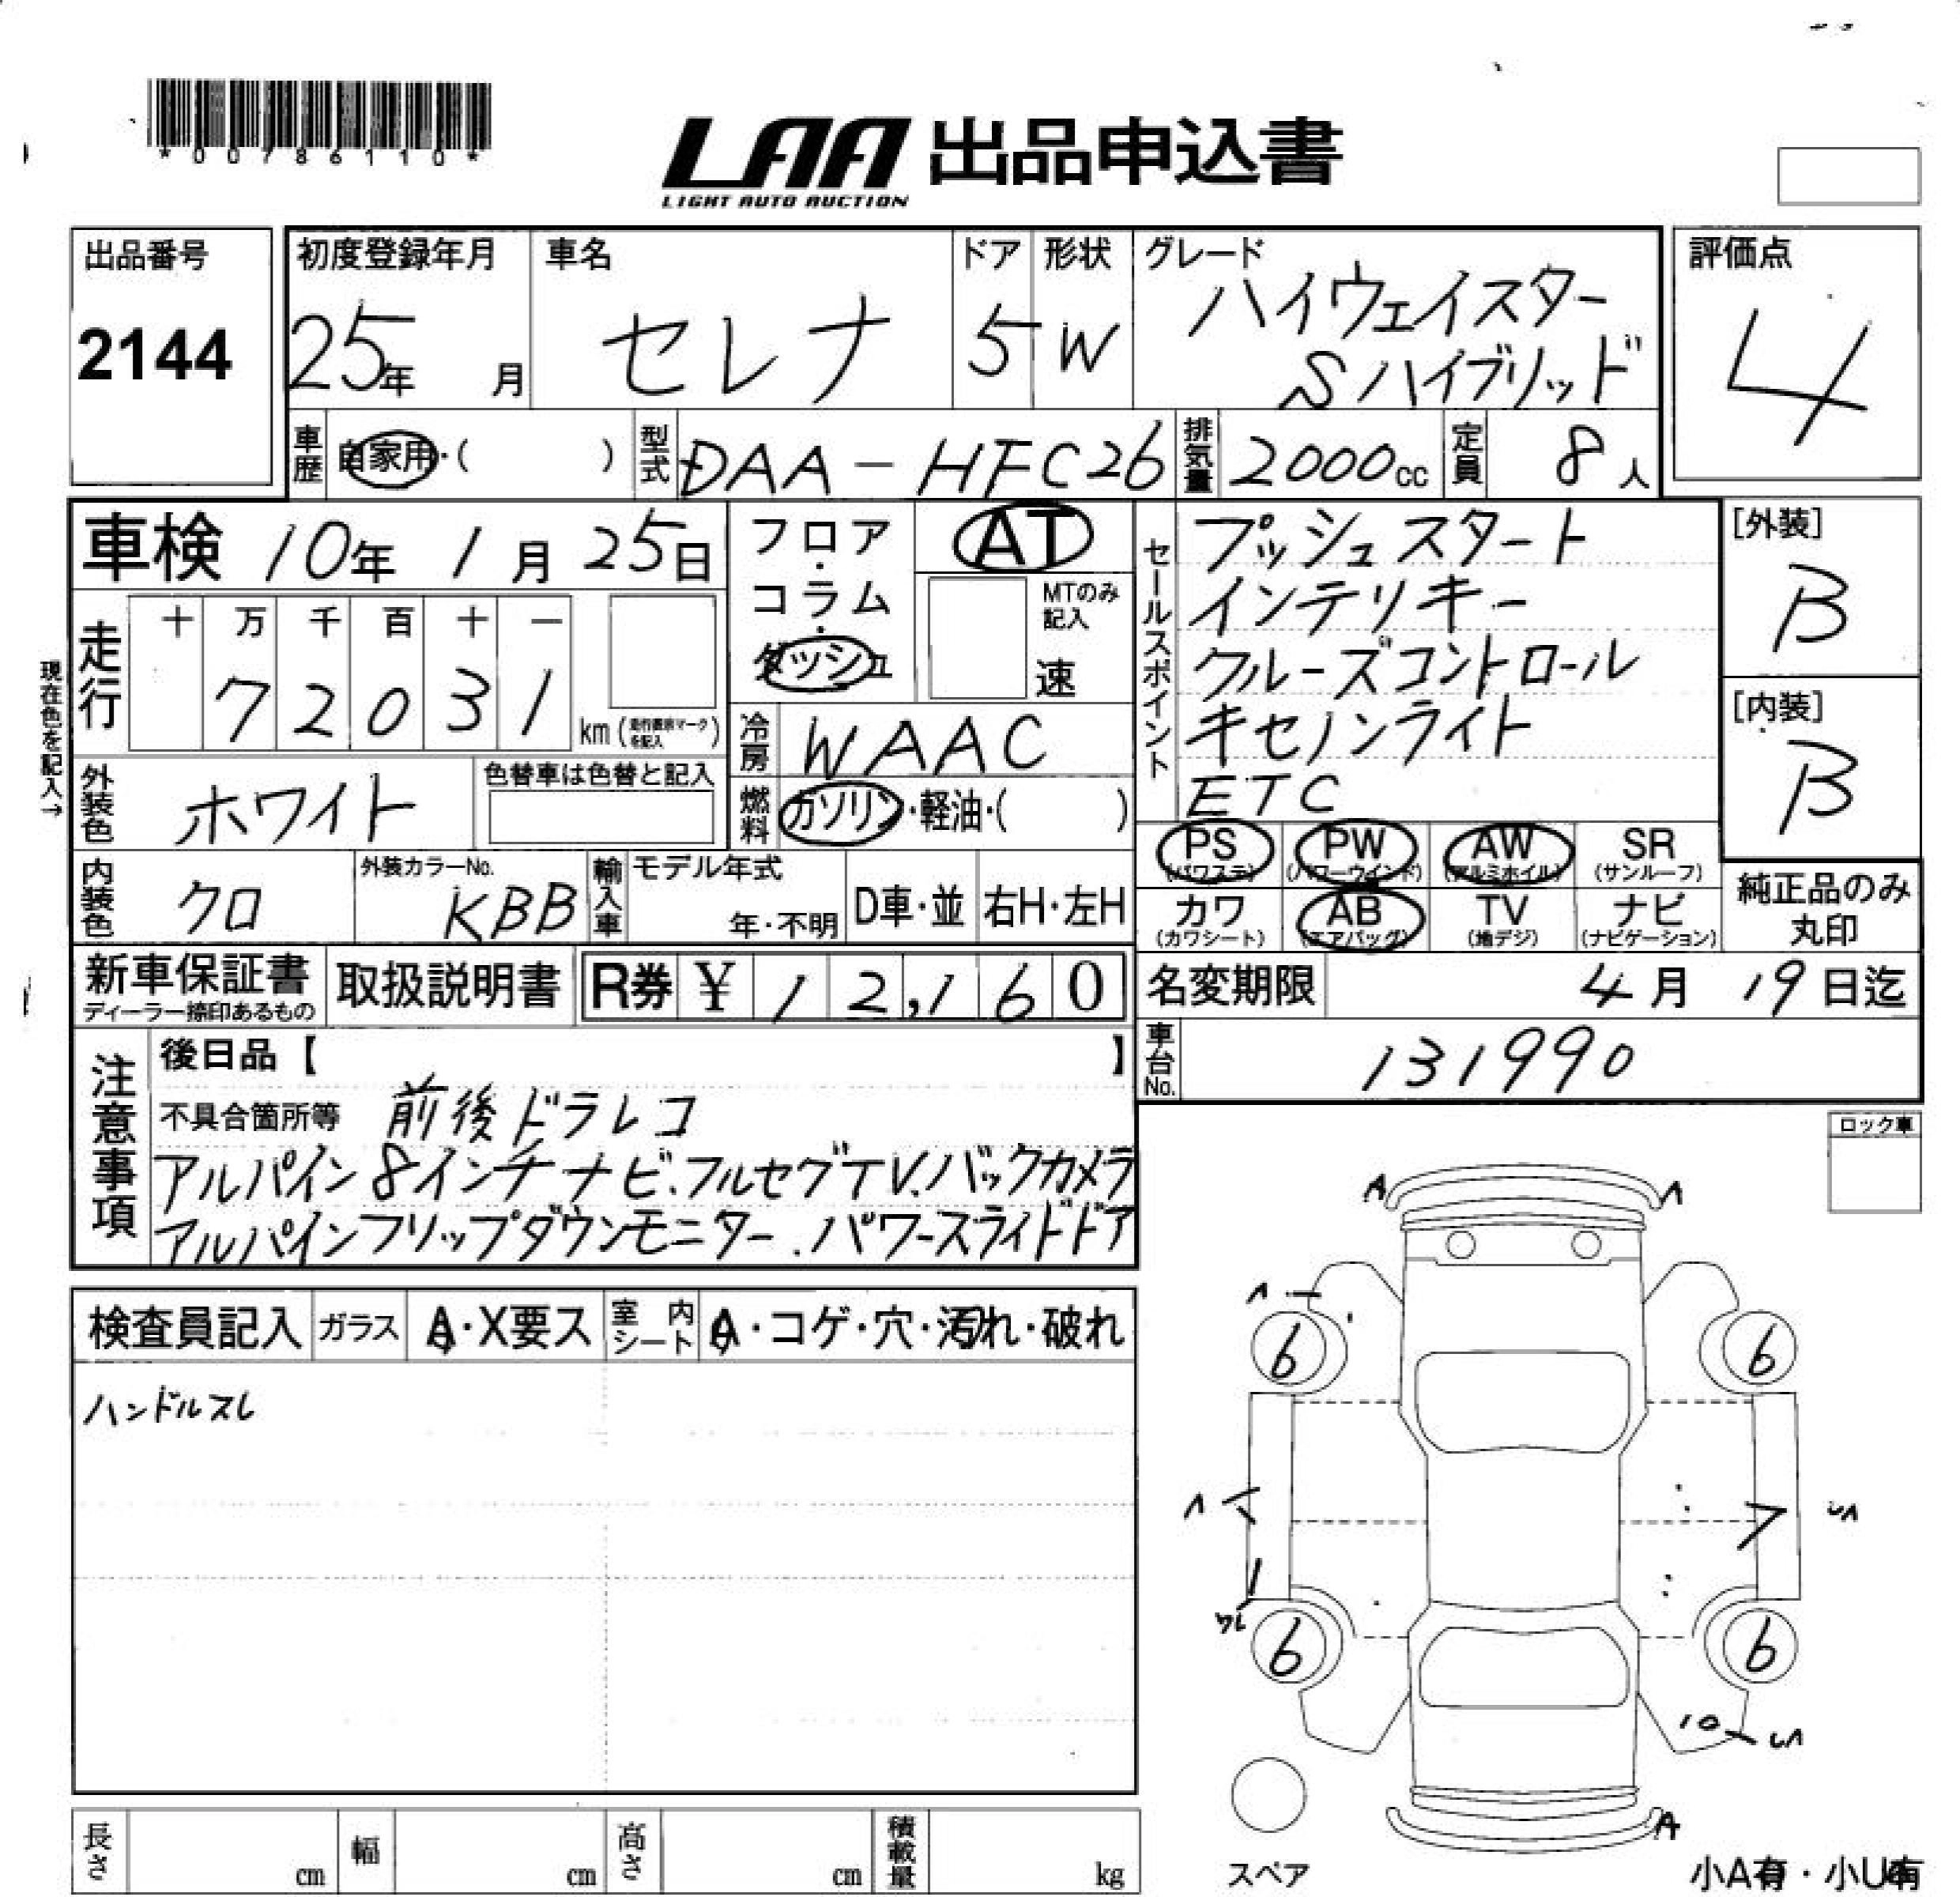 *00786110*
LAA 出品申込書
LIGHT AUTO AUCTION
出品番号
2144
初度登録年月
25年 月
車名
セレナ
ドア
5
形状
W
グレード
ハイウェイスター
Sハイブリッド
評価点
4
車歴 自家用・( )
型式 DAA-HFC26
排気量 2000cc
定員 8人
車検 10年 1月 25日
フロア・コラム・ダッシュ
AT
MTのみ記入
速
セールスポイント
プッシュスタート
インテリキー
クルーズコントロール
キセノンライト
ETC
[外装]
B
[内装]
B
現在色を記入→
走行
十 万 千 百 十 一
7 2 0 3 1
km (
を記入 )
冷房 WAAC
外装色 ホワイト
色替車は色替と記入
燃料 ガソリン・軽油・( )
PS (パワステ)
PW (パワーウインド)
AW (アルミホイル)
SR (サンルーフ)
カワ (カワシート)
AB (エアバッグ)
TV (地デジ)
ナビ (ナビゲーション)
純正品のみ
丸印
内装色 クロ
外装カラーNo.
KBB
輸入車
モデル年式
年・不明
D車・並
右H・左H
新車保証書
ディーラー捺印あるもの
取扱説明書
R券 ¥ 12,160
名変期限 4月 19日迄
車台No. 131990
注意事項
後日品【 】
不具合箇所等 前後ドラレコ
アルパイン8インチナビ、フルセグTV.バックカメラ
アルパインフリップダウンモニター.パワースライドドア
ロック車
検査員記入
ガラス A・X要ス
室内シート A・コゲ・穴・汚れ・破れ
ハンドルスレ
A
A
6
6
6
6
A
スペア
小A有・小U有
長さ cm
幅 cm
高さ cm
積載量 kg